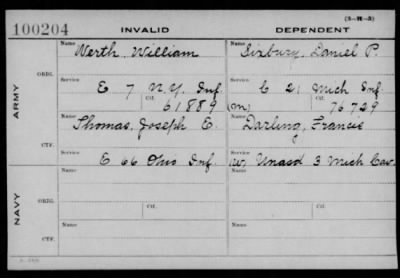 (3-H-3)
100204 INVALID DEPENDENT
Name Name
Werth, William Sixbury, Daniel P.
ORIG.
Service Service
E 7 N.Y. Inf. C 21 Mich Inf.
Ctf. Ctf.
61889 (M) 76729
ARMY
Name Name
Thomas, Joseph E. Darling, Francis
CTF.
Service Service
E 66 Ohio Inf. (W) Unasd 3 Mich Cav.
Name Ctf. Name Ctf.
ORIG.
NAVY
Name Name
CTF.